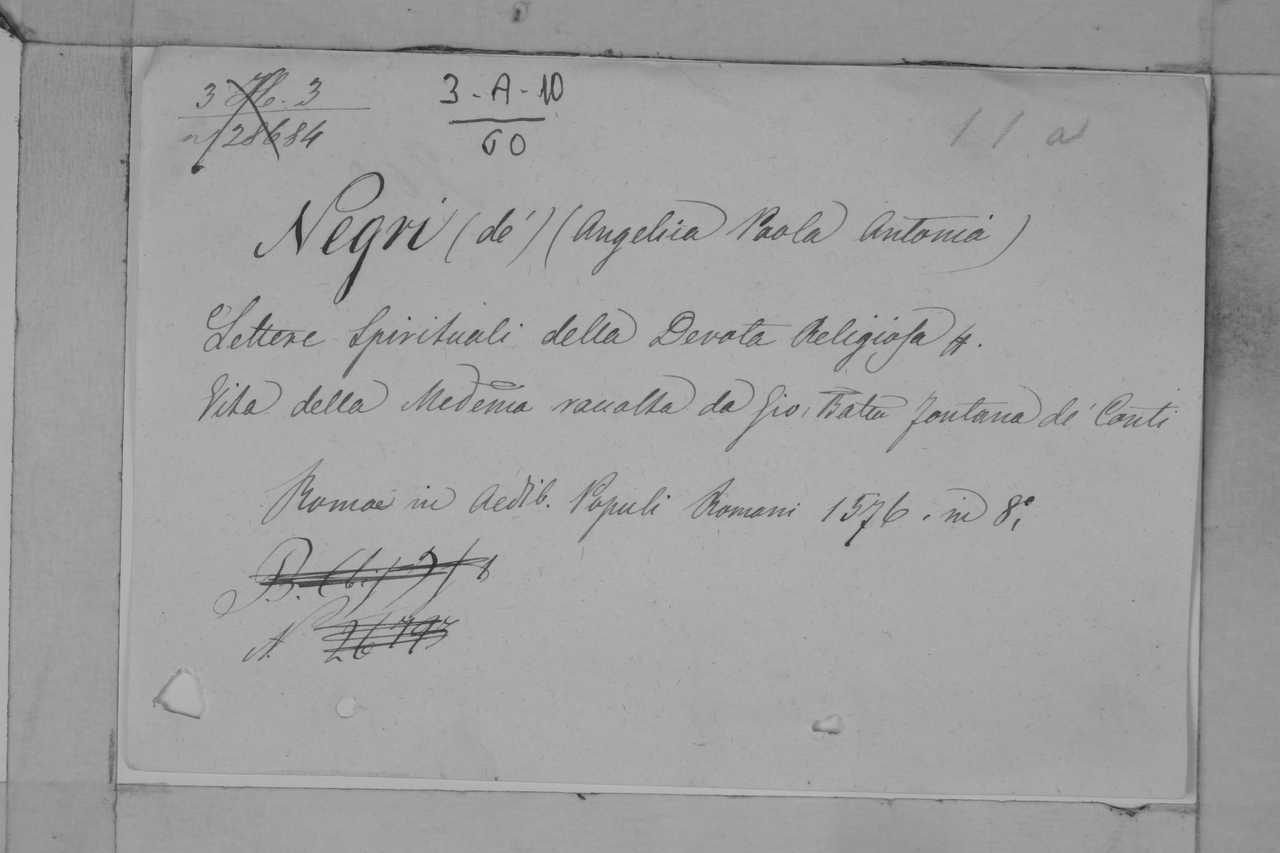 3 . 3
n 28684
3-A-10
60
11 a
Negri (de') (Angelica Paola Antonia)
Lettere Spirituali della Devota Religiosa
Vita della Medēma raccolta da Gio. Batta Fontana de' Conti
Romae in Aedib. Populi Romani 1576. in 8.°
N. 26793